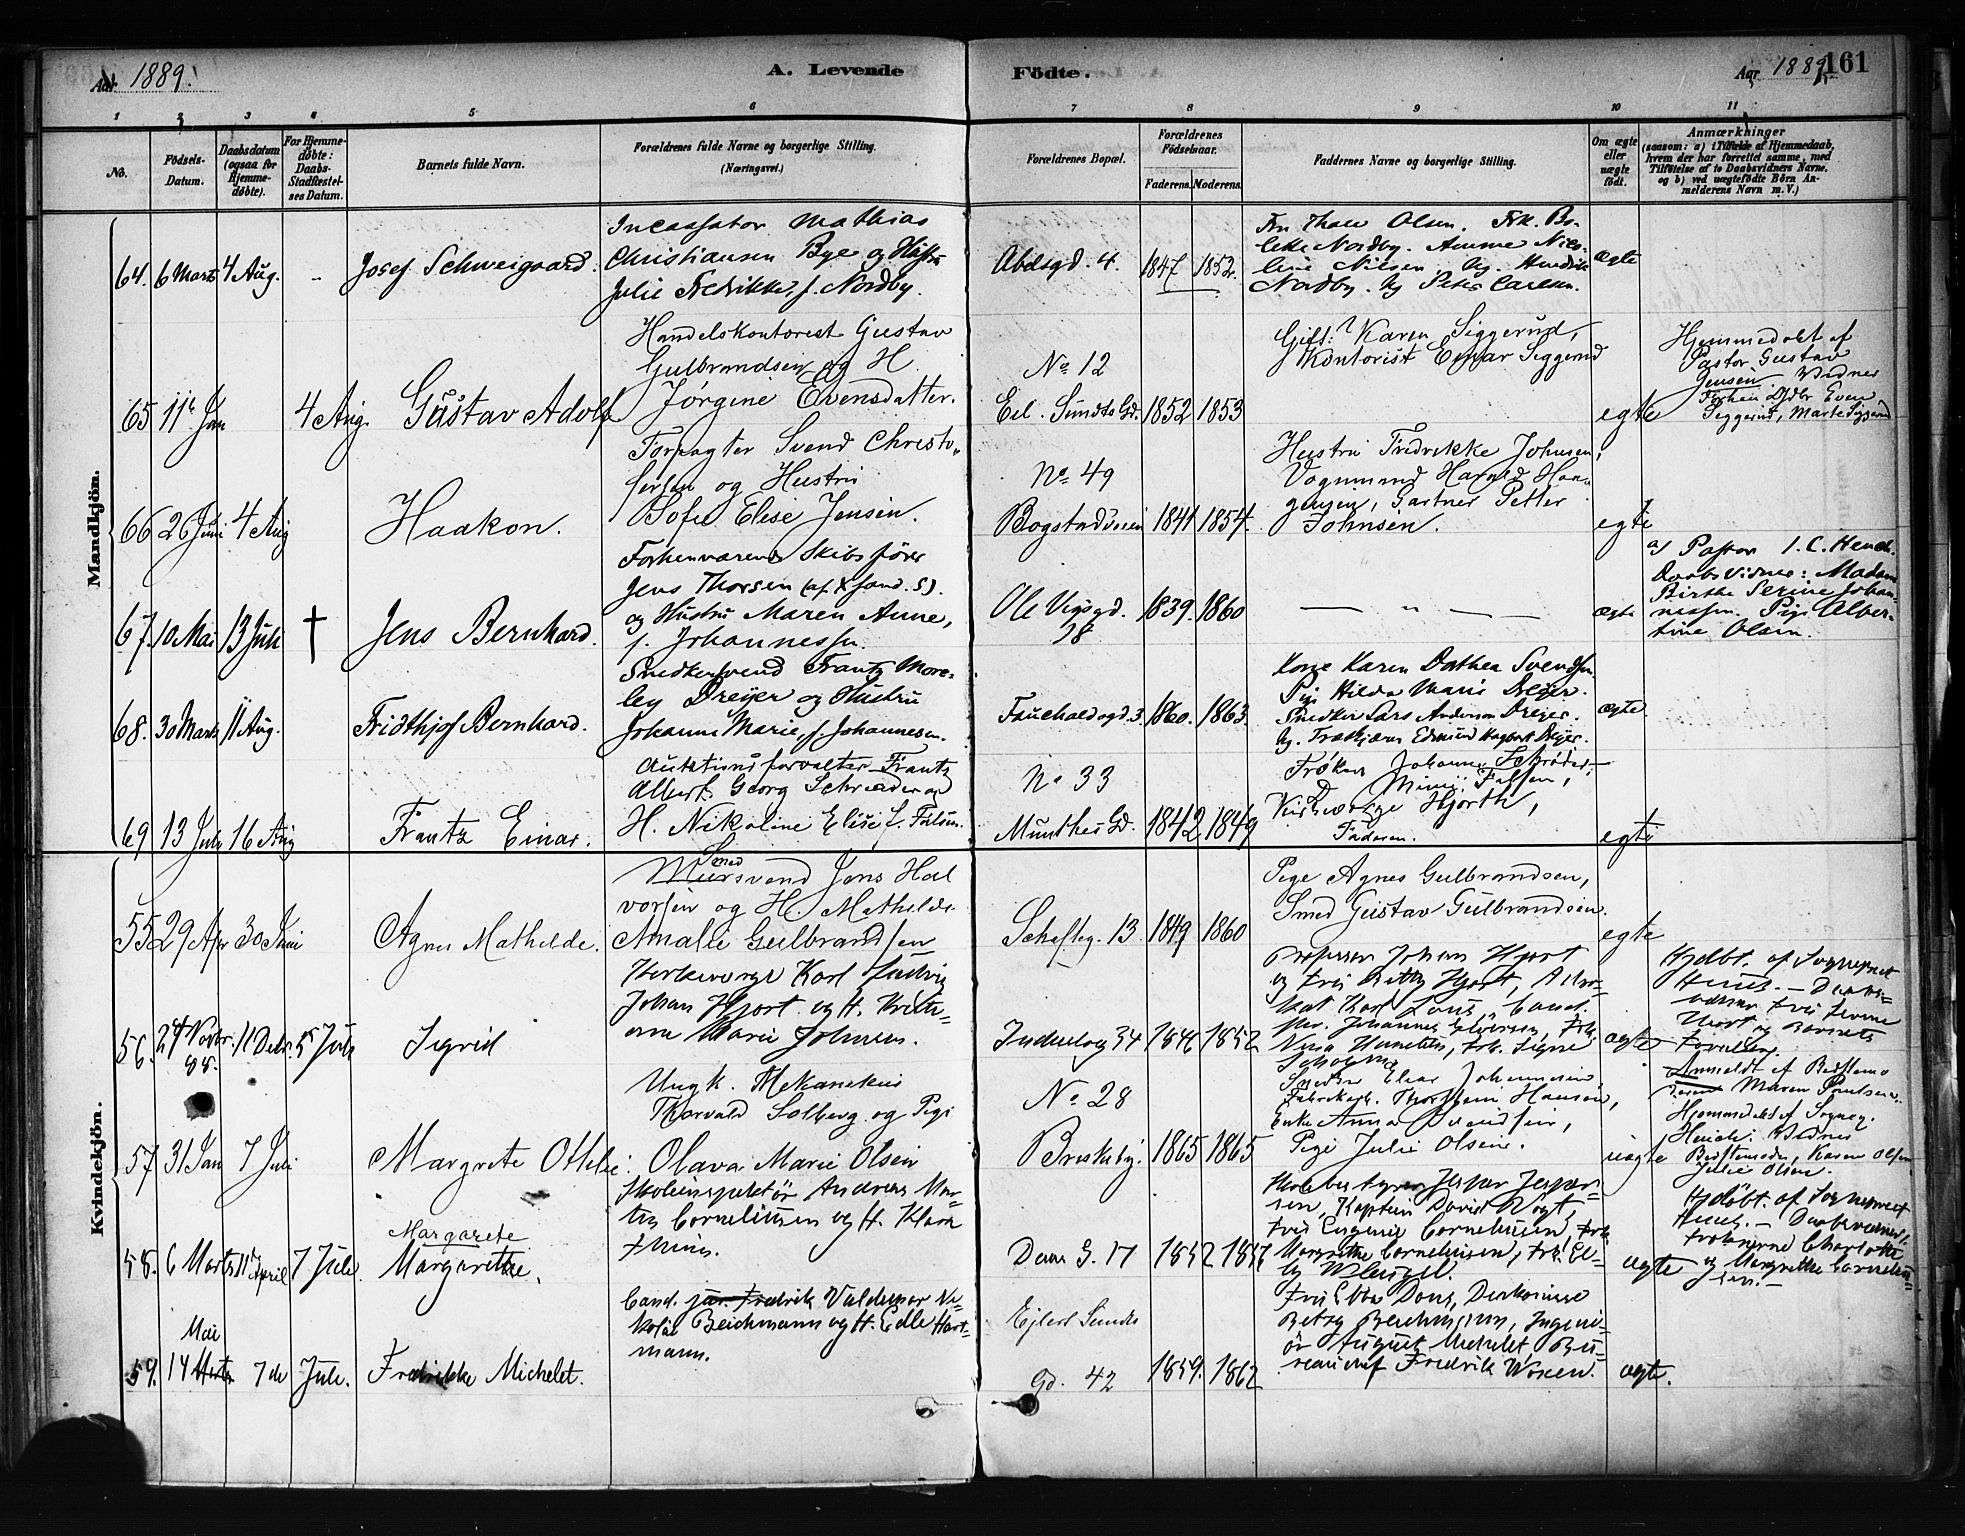 Aar 1889.
A. Levende
Födte.
Aar 1889.
161
1 2 3 4 5 6 7 8 9 10 11
No.
Födsels-Datum.
Daabsdatum (ogsaa for Hjemmedöbte).
For Hjemmedöbte: Daabs-Stadfæstelses Datum.
Barnets fulde Navn.
Forældrenes fulde Navne og borgerlige Stilling. (Næringsvei.)
Forældrenes Bopæl.
Forældrenes Födselsaar.
Faderens. Moderens.
Faddernes Navne og borgerlige Stilling.
Om ægte eller uægte födt.
Anmærkninger
(saasom: a) i Tilfælde af Hjemmedaab,
hvem der har forrettet samme, med
Tilföielse af to Daabsvidners Navne,
og b) ved uægtefödte Börn An-
melderens Navn m. V.)
Mandkjön.
64. 6 Marts 4 Aug. - Josef Schweigaard.
Incassator Mathias
Christiansen Bye og Hustru
Julie Fredrikke, f. Nordby.
Abelsgd. 4. 1847 1852.
Fru Thale Olsen. Frk. Bo-
lette Nordby. Amme Nico-
line Nilsen. Ug. Hendrik
Nordby. Ug Peter Carlsen.
ægte
65 11te Jan 4 Aug. Gustav Adolf
Handelskontorist Gustav
Gulbrandsen og H.
Jørgine Evensdatter.
No 12
Eil. Sundts Gd. 1852 1853
Gift: Karen Siggerud,
Kontorist Einar Siggerud
egte
Hjemmedøbt af
Pastor Gustav
Jensen Vidner
Even
Siggerud, Marte Siggerud
66 26 Juni 4 Aug Haakon.
Forpagter Svend Christo-
fersen og Hustru
Sofie Elise Jensen.
No 49
Bogstadveien 1841 1854.
Hustru Fredrikke Johnsen,
Vognmand Harald Haa-
gensen, Gartner Petter
Johnsen.
egte
67. 10 Mai 13 Juli † Jens Bernhard.
Forhenværende Skibsfører
Jens Thorsen (af X sand. S).
og Hustru Maren Anne,
f. Johannessen.
Ole Vigsgd. 28 1839. 1860
— " —
ægte
af Pastor I. C. Heuch.
Daabsvidner: Madam
Birthe Serine Johan-
nessen. Pige Alber-
tine Olsen.
68. 30 Marts 11 Aug. Fridthjof Bernhard.
Snedkersvend Frantz More-
ley Dreyer og Hustru
Johanne Marie, f. Johannesen.
Fauchaldsgd. 3. 1860. 1863
Kone Karen Dathea Svendsen
Pige Hilda Marie Dreyer.
Snedker Lars Anderson Dreyer.
Ug. Edmund Hagbart Dreyer.
ægte.
69 13 Juli 16 Aug Frantz Einar.
Auktionsforvalter Frantz
Albert Georg Schrøder og
H. Nikoline Elise f. Falsen.
No 33
Munthes Gd. 1842 1849
Frøken Johanne Schrøder,
Minni Falsen,
Kirkeverge Hjorth,
Faderen.
egte
Kvindekjön.
55 29 Apr 30 Juni Agnes Mathilde.
Smed
Mursvend Jens Hal
vorsen og H. Mathilde
Amalie Gulbrandsen
Scheftesg. 13. 1849 1860
Pige Agnes Gulbrandsen,
Smed Gustav Gulbrandsen.
egte
56. 24 Novbr. 88. 11 Debr. 5 Juli Sigrid
Kirkeverge Karl Ludvig
Johan Hjort og H.
Marie Johnsen.
Industrig 34 1846 1852
Professor Johan Hjort
og Fru Betty Hjort, Advo-
kat Karl Lous, Cand.
Johannes, Frk.
Nina, Frk. Signe
ægte
Hjdbt. af Sognepræst
Heuch. — Daabs-
vidner Fru
Hjort og Barnets
Forældre.
57 31 Jan 7 Juli Margrete Othilie.
Ungk. Mekanikus
Thorvald Solberg og Pige
Olava Marie Olsen
No 28
Briskeby. 1865 1865
Snedker Elias Johannesen,
Fabrikarb. Thorstein Hansen,
Enke Anna,
Pige Julie Olsen.
uægte
Anmeldt af Bedstemo
deren Maren Poulsen.
Hjemmedøbt af Sognep.
Heuch. Vidner
Bedstemoder, Karen Olsen
Julie Olsen.
58. 6 Marts 11te April 7 Juli Margarete
Margarethe.
Skoleinspektør Andreas Mar-
tin Corneliussen og H. Klara
Thiis.
Daas G. 17 1852 1857
Skolebestyrer Jesper Jesper-
sen, Kaptein David Vogt,
Fru Eugenie Corneliussen, Frk.
Margrethe Corneliussen, Frk. El-
ægte
Hjdöbt. af Sognepræst
Heuch. — Daabsvidner,
Frøknerne Charlotte
og Margrethe Corneliu-
sen.—
59. 14 Mai 7de Juli. Fredrikke Michelet.
Cand. jur. Fredrik Valdemar Ni-
kolai Beichmann og H. Edle Hart-
mann.
Ejlert Sundts
gd. 42 1859. 1862
Fru Ebba Dons, Diakonisse
Betzy Beichmann, Ingeni-
ör August Michelet Bu-
reauchef Fredrik Woxen.
ægte.